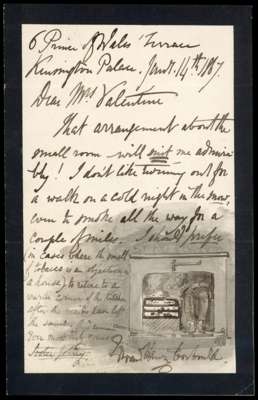 6 Prince of Wales' Terrace
Kensington Palace. 14th /67.
Dear Mrs Valentine
That arrangement about the
small room will suit me admira
bly! I don't like turning out for
a walk on a cold night in the snow,
even to smoke all the way for a
couple of miles. I should prefer
(in cases where the smell
of tobacco is an objection in
a house) to retire to a
corner of the kitchen
after the have left
the